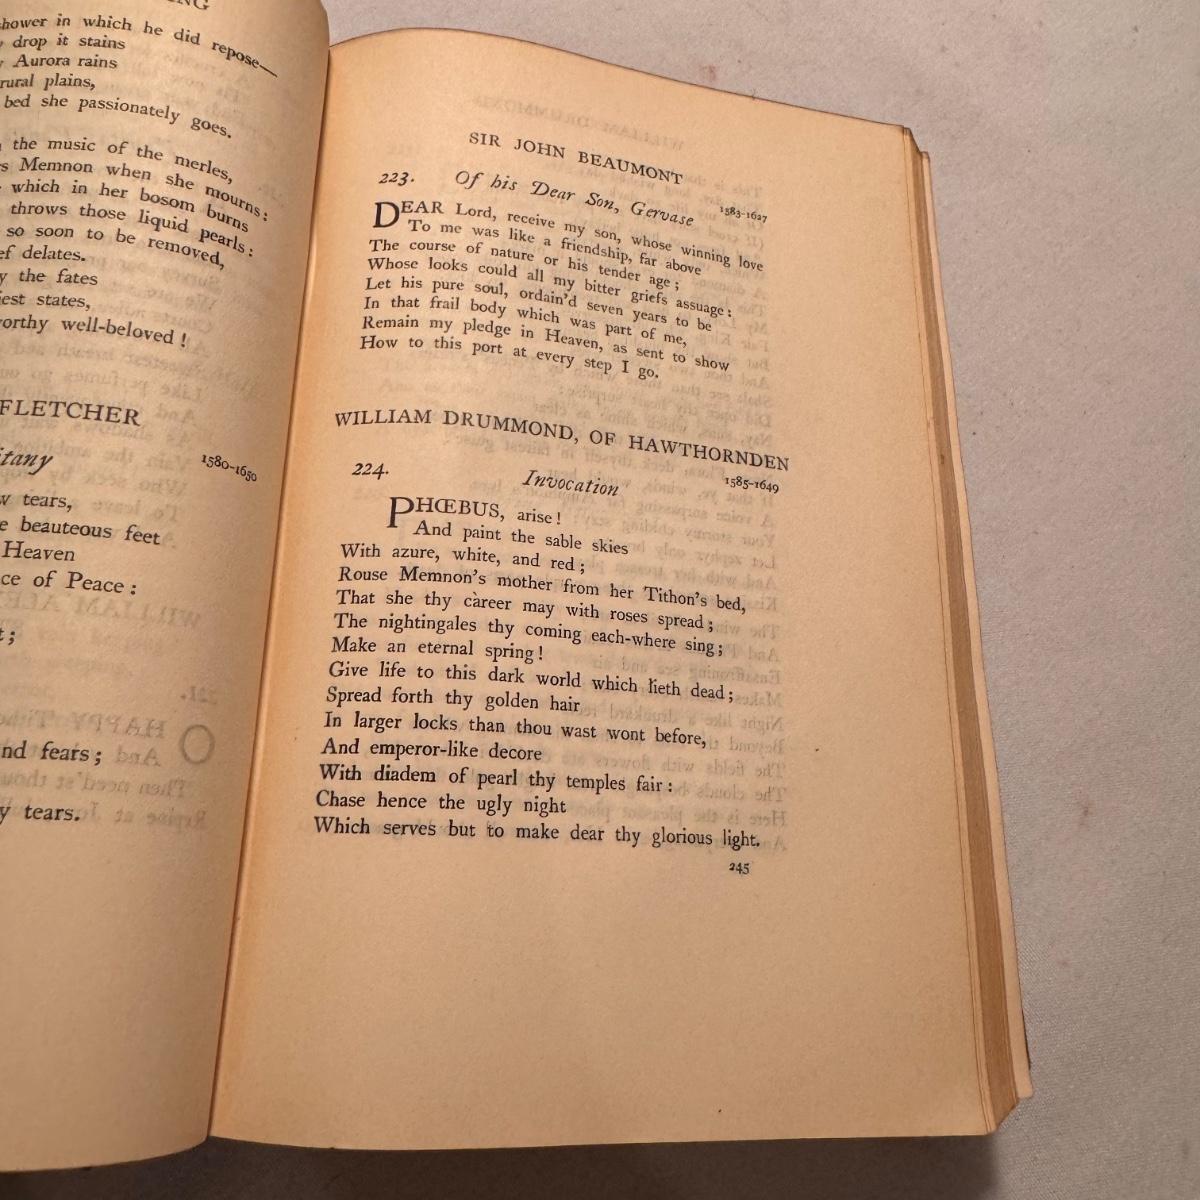 shower in which he did repose—
drop it stains
Aurora rains
rural plains,
bed she passionately goes.
the music of the merles,
Memnon when she mourns:
which in her bosom burns
throws those liquid pearls:
so soon to be removed,
delates.
the fates
states,
well-beloved!
FLETCHER
1580-1650
tears,
beauteous feet
Heaven
of Peace:
fears;
tears.
SIR JOHN BEAUMONT
1583-1627
223. Of his Dear Son, Gervase
DEAR Lord, receive my son, whose winning love
To me was like a friendship, far above
The course of nature or his tender age;
Whose looks could all my bitter griefs assuage:
Let his pure soul, ordain'd seven years to be
In that frail body which was part of me,
Remain my pledge in Heaven, as sent to show
How to this port at every step I go.
WILLIAM DRUMMOND, OF HAWTHORNDEN
1585-1649
224. Invocation
PHŒBUS, arise!
And paint the sable skies
With azure, white, and red;
Rouse Memnon's mother from her Tithon's bed,
That she thy càreer may with roses spread;
The nightingales thy coming each-where sing;
Make an eternal spring!
Give life to this dark world which lieth dead;
Spread forth thy golden hair
In larger locks than thou wast wont before,
And emperor-like decore
With diadem of pearl thy temples fair:
Chase hence the ugly night
Which serves but to make dear thy glorious light.
245